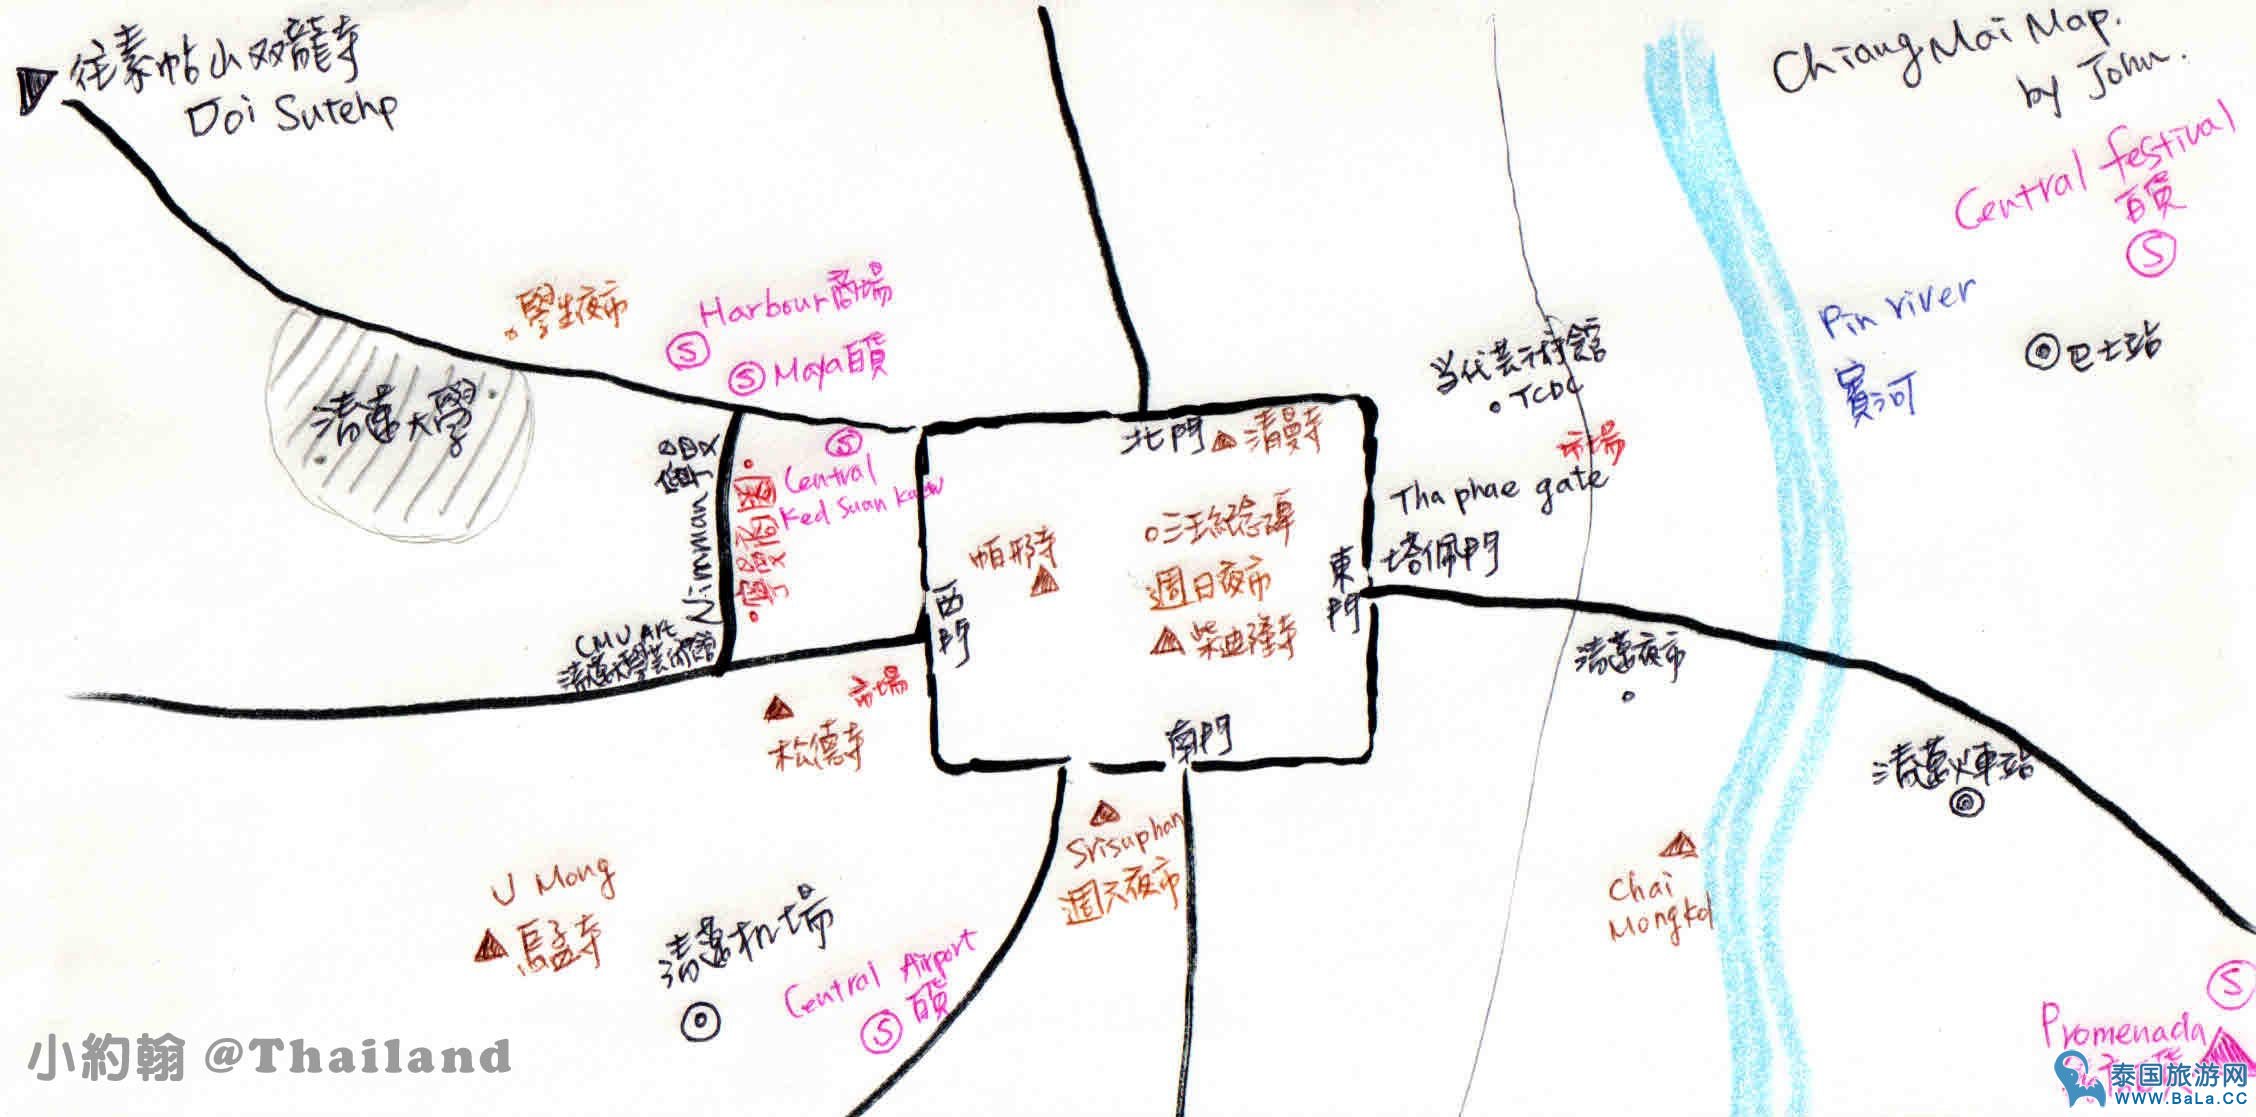 往素帖山双龍寺
Doi Sutehp
Chiang Mai Map.
by John.
Central festival
百貨
S
學生夜市
Harbour 商場
S
S Maya 百貨
Pin river
賓河
巴士站
当代芸術館
TCDC
清邁大學
S
Central
Ked Suan kaew
Nimman
寧曼商圈
北門
清曼寺
市場
Thaphae gate
塔佩門
三王紀念
帕邢寺
週日夜市
柴迪隆寺
西門
東門
CMU Art
清邁大學芸術館
清邁夜市
市場
松德寺
南門
清邁火車站
Srisuphan
週六夜市
Chai
Mongkol
U Mong
烏孟寺
清邁机场
Central Airport
百貨
S
S
Promenada
小約翰 @Thailand
泰国旅游网
www.BaLa.CC